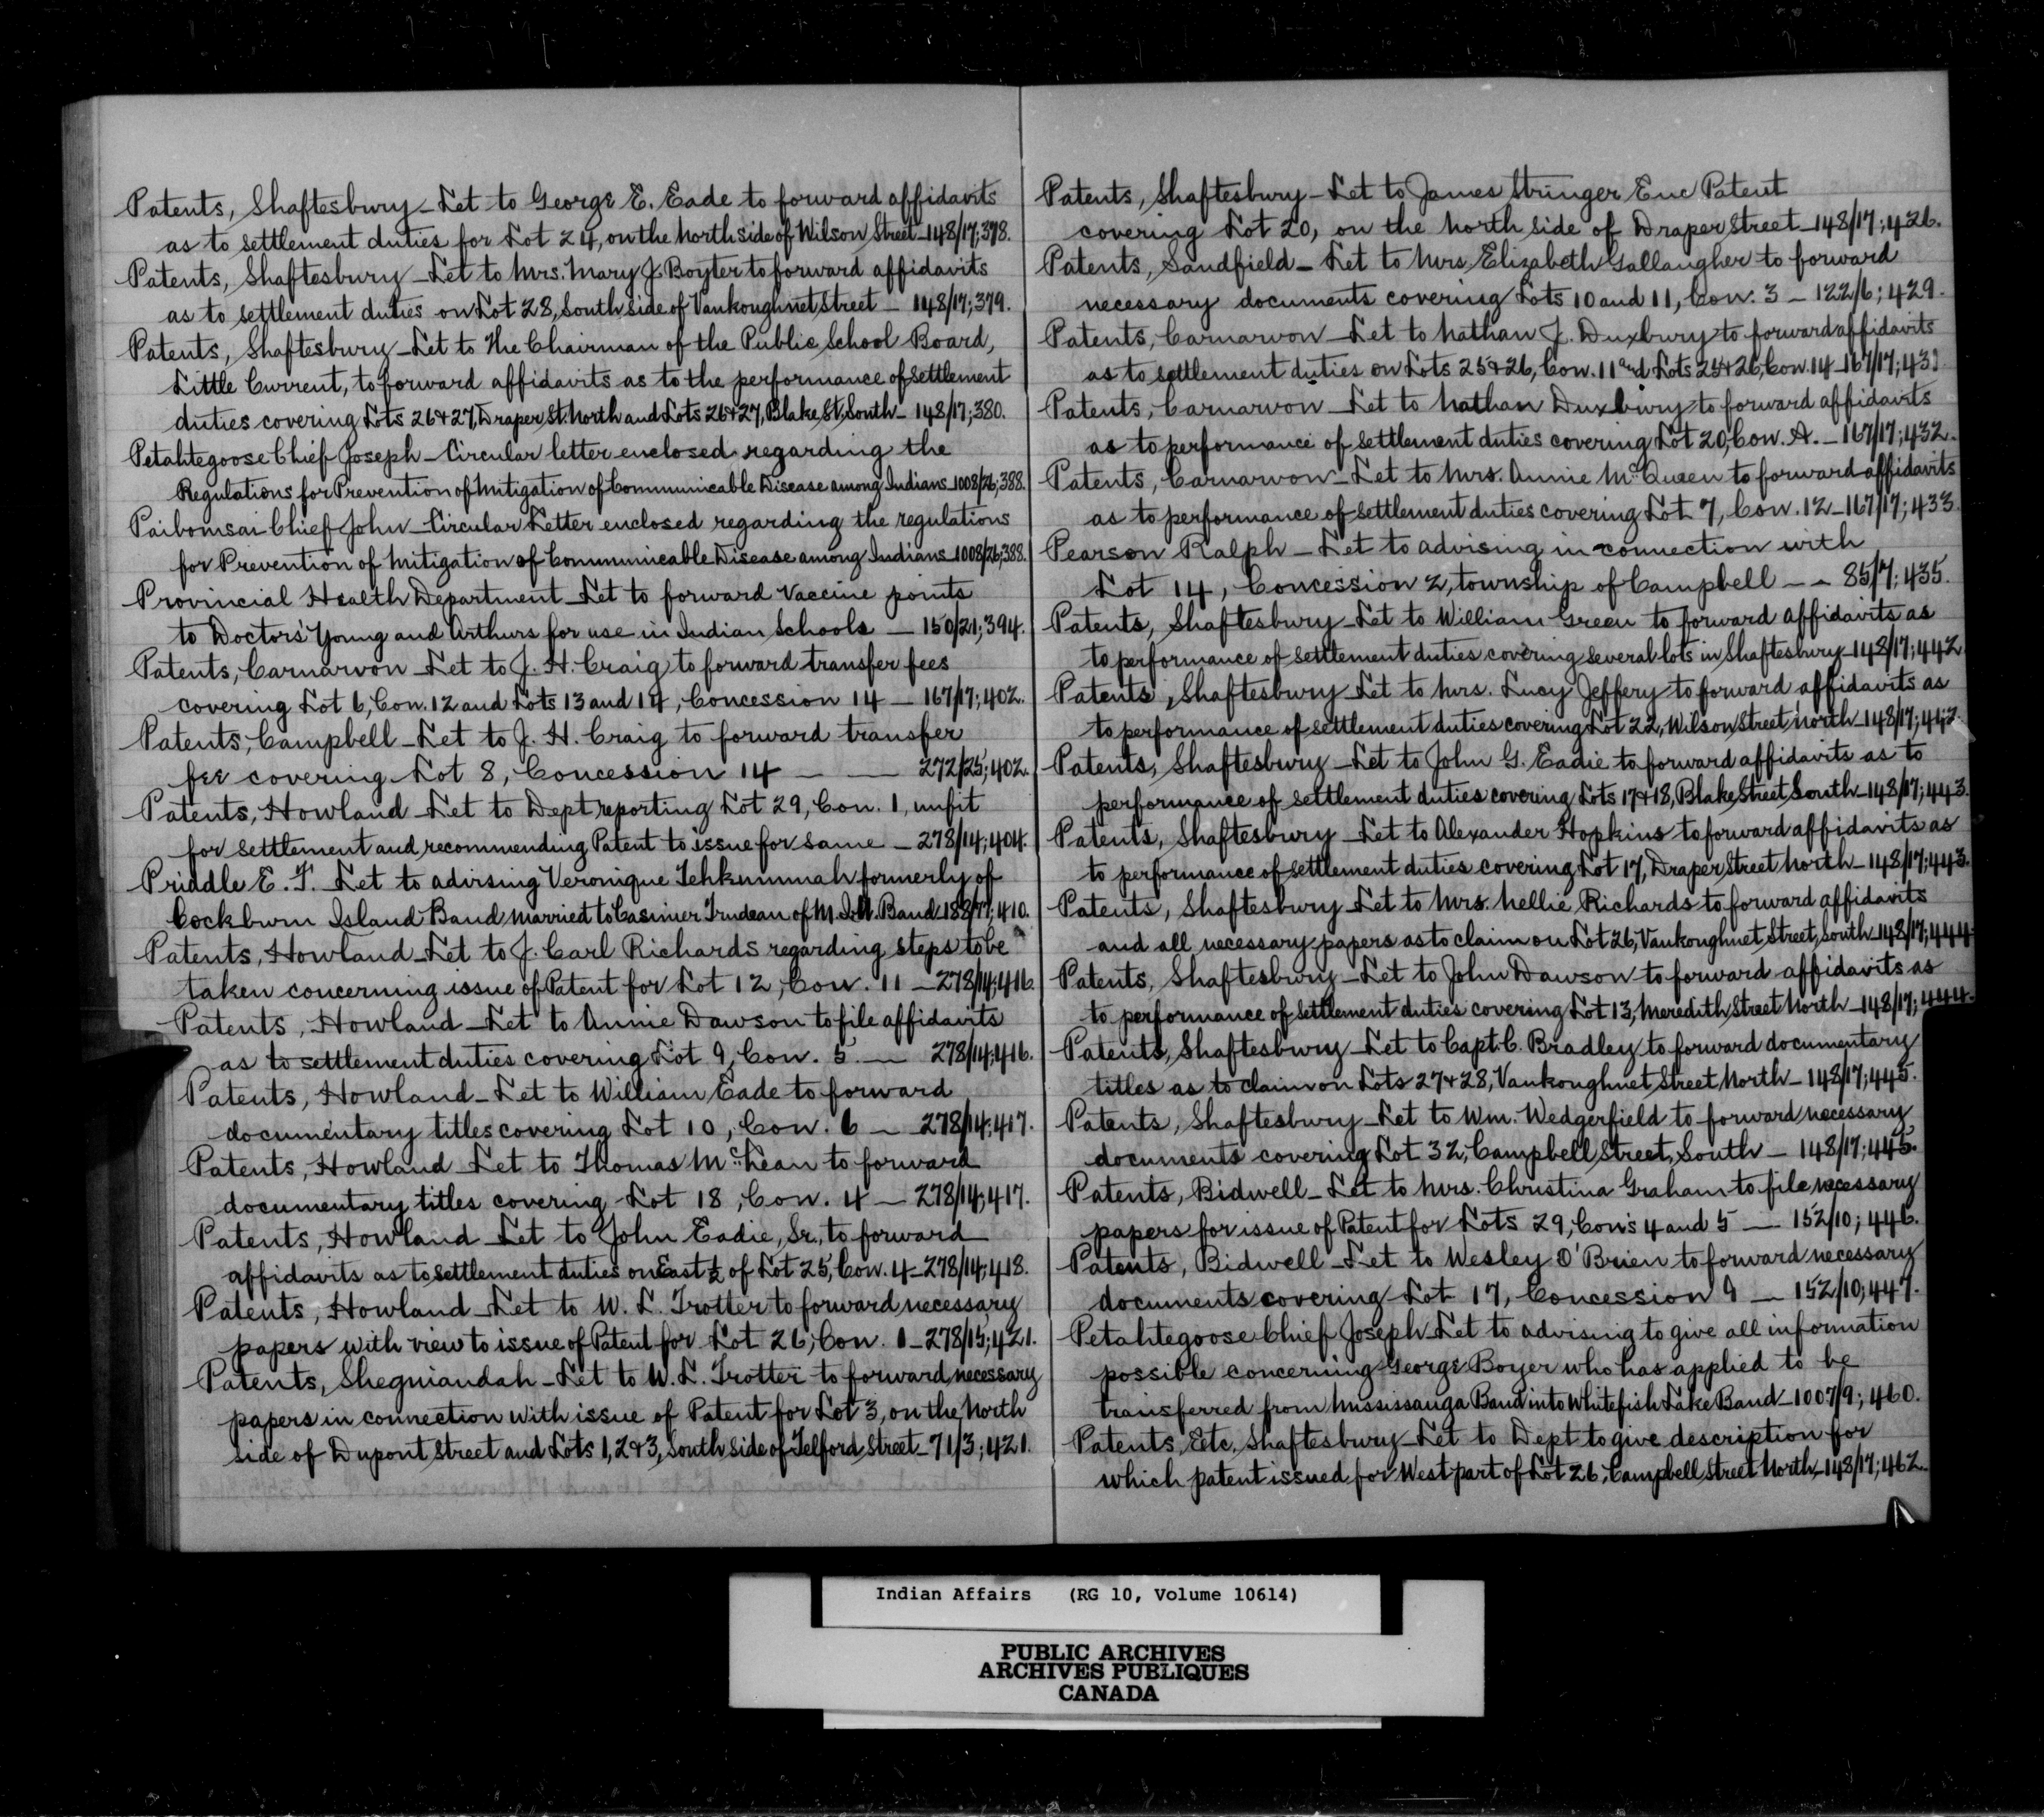 Patents, Shaftesbury - Let to George E. Eade to forward affidavits
as to settlement duties for Lot 24, on the north side of Wilson Street - 148/17; 378.
Patents, Shaftesbury - Let to Mrs. Mary J. Boyter to forward affidavits
as to settlement duties on Lot 28, South side of Vankoughnet Street - 148/17; 379.
Patents, Shaftesbury - Let to The Chairman of the Public School Board,
Little Current, to forward affidavits as to the performance of settlement
duties covering Lots 26 & 27, Draper St. North and Lots 26 & 27, Blake St, South - 148/17; 380.
Petahtegoose Chief Joseph - Circular letter enclosed regarding the
Regulations for Prevention of Mitigation of Communicable Disease among Indians - 1008/26; 388.
Paibomsai Chief John - Circular Letter enclosed regarding the regulations
for Prevention of Mitigation of Communicable Disease among Indians - 1008/26; 388.
Provincial Health Department - Let to forward Vaccine points
to Doctors' Young and Arthurs for use in Indian Schools - 150/21; 394.
Patents, Carnarvon - Let to J. H. Craig to forward transfer fees
covering Lot 6, Con. 12 and Lots 13 and 14, Concession 14 - 167/17; 402.
Patents, Campbell - Let to J. H. Craig to forward transfer
fee covering Lot 8, Concession 14 - - 272/25; 402.
Patents, Howland - Let to Dept reporting Lot 29, Con. 1, unfit
for settlement and recommending Patent to issue for same - 278/14; 404.
Priddle E. F. - Let to advising Veronique Tehkummah formerly of
Cockburn Island Band married to Casimer Trudeau of M. I. U. Band 188/17; 410.
Patents, Howland - Let to J. Carl Richards regarding steps to be
taken concerning issue of Patent for Lot 12, Con. 11 - 278/14; 416.
Patents, Howland - Let to Annie Dawson to file affidavits
as to settlement duties covering Lot 9, Con. 5. - 278/14; 416.
Patents, Howland - Let to William Eade to forward
documentary titles covering Lot 10, Con. 6 - 278/14; 417.
Patents, Howland - Let to Thomas McLean to forward
documentary titles covering Lot 18, Con. 4 - 278/14; 417.
Patents, Howland - Let to John Eadie, Sr., to forward
affidavits as to settlement duties on East ½ of Lot 25, Con. 4 - 278/14; 418.
Patents, Howland - Let to W. L. Trotter to forward necessary
papers with view to issue of Patent for Lot 26, Con. 1 - 278/15; 421.
Patents, Sheguiandah - Let to W. L. Trotter to forward necessary
papers in connection with issue of Patent for Lot 3, on the North
side of Dupont Street and Lots 1, 2 & 3, South side of Telford Street - 71/3; 421.
Patents, Shaftesbury - Let to James Stringer Enc Patent
covering Lot 20, on the north side of Draper Street - 148/17; 426.
Patents, Sandfield - Let to Mrs Elizabeth Gallaugher to forward
necessary documents covering Lots 10 and 11, Con. 3 - 122/6; 429.
Patents, Carnarvon - Let to Nathan J. Duxbury to forward affidavits
as to settlement duties on Lots 25 & 26, Con. 11 and Lots 25 & 26, Con. 14 - 167/17; 431.
Patents, Carnarvon - Let to Nathan Duxbury to forward affidavits
as to performance of settlement duties covering Lot 20, Con. A. - 167/17; 432.
Patents, Carnarvon - Let to Mrs. Annie McQueen to forward affidavits
as to performance of settlement duties covering Lot 7, Con. 12 - 167/17; 433.
Pearson Ralph - Let to advising in connection with
Lot 14, Concession 2, township of Campbell - - 85/7; 435.
Patents, Shaftesbury - Let to William Green to forward affidavits as
to performance of settlement duties covering several lots in Shaftesbury - 148/17; 442
Patents, Shaftesbury - Let to Mrs. Lucy Jeffery to forward affidavits as
to performance of settlement duties covering Lot 22, Wilson Street North - 148/17; 442.
Patents, Shaftesbury - Let to John G. Eadie to forward affidavits as to
performance of settlement duties covering Lots 17 & 18, Blake Street South - 148/17; 443.
Patents, Shaftesbury - Let to Alexander Hopkins to forward affidavits as
to performance of settlement duties covering Lot 17, Draper Street North - 148/17; 443.
Patents, Shaftesbury - Let to Mrs. Nellie Richards to forward affidavits
and all necessary papers as to claim on Lot 26, Vankoughnet Street, South - 148/17; 444.
Patents, Shaftesbury - Let to John Dawson to forward affidavits as
to performance of settlement duties covering Lot 13, Meredith Street North - 148/17; 444.
Patents, Shaftesbury - Let to Capt. C. Bradley to forward documentary
titles as to claim on Lots 27 & 28, Vankoughnet Street, North - 148/17; 445.
Patents, Shaftesbury - Let to Wm. Wedgerfield to forward necessary
documents covering Lot 32, Campbell Street, South - 148/17; 445.
Patents, Bidwell - Let to Mrs. Christina Graham to file necessary
papers for issue of Patent for Lots 29, Con's 4 and 5 - 152/10; 446.
Patents, Bidwell - Let to Wesley O'Brien to forward necessary
documents covering Lot 17, Concession 9 - 152/10, 447.
Petahtegoose Chief Joseph - Let to advising to give all information
possible concerning George Boyer who has applied to be
transferred from Mississauga Band into Whitefish Lake Band - 1007/9; 460.
Patents, Etc, Shaftesbury - Let to Dept to give description for
which patent issued for West part of Lot 26, Campbell Street North - 148/17; 462.
Indian Affairs (RG 10, Volume 10614)
PUBLIC ARCHIVES
ARCHIVES PUBLIQUES
CANADA